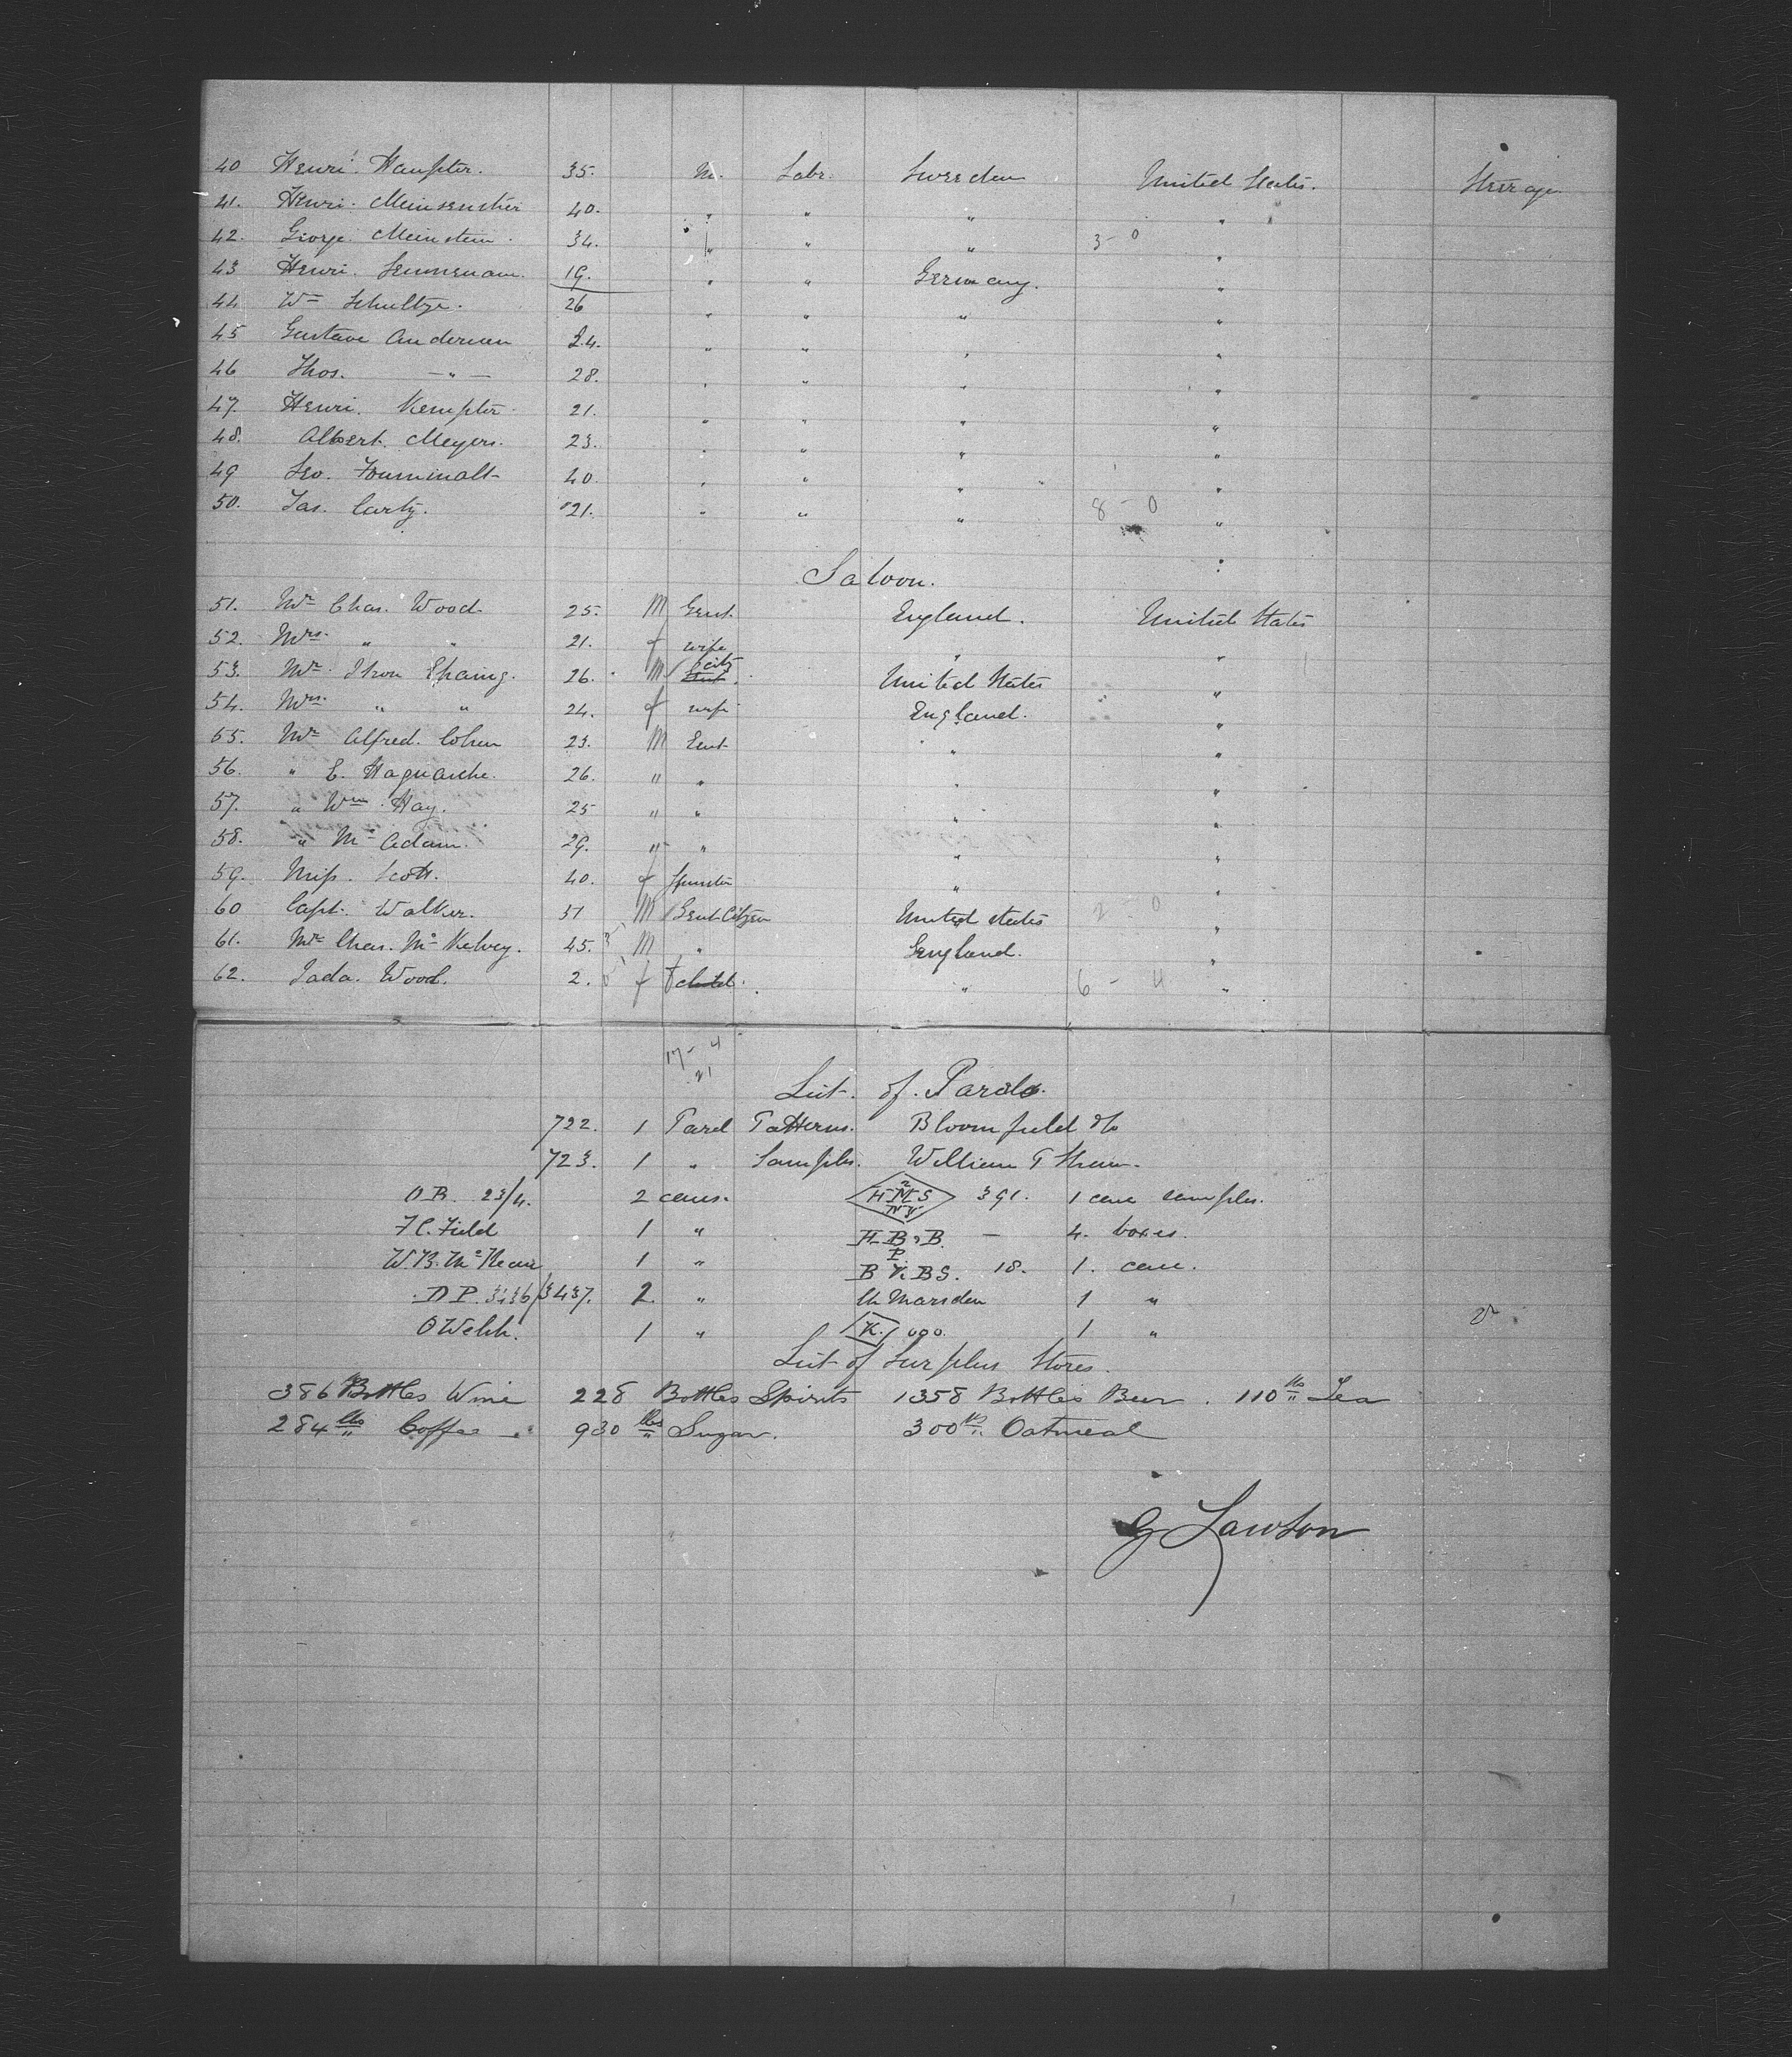 40 Henri Haupter. 35. M. Labr. Sweeden United States. Steerage
41. Henri. 40. " " " "
42. George Meinstein. 34. " " " 3 - 0 "
43 Henri. 19. " " Germany. "
44 Wm Schultze. 26 " " " "
45 Gustave Andersen 24. " " " "
46 Thos. — " — 28. " " " "
47. Henri. Kempter. 21. " " " "
48. Albert. Meyers. 23. " " " "
49 Leo. 40. " " " "
50. Jas. Carty. 21. " " " 8 - 0 "
Saloon.
51. Mr Chas. Wood 25. M Gent. England. United States
52. Mrs. " " 21. f wife " "
53. Mr. 26. M citz United States "
54. Mrs. " " 24. f wife England. "
55. Mr Alfred. Cohen 23. M Gent " "
56. " E. Haguache. 26. " " " "
57. " Wm. Hay. 25 " " " "
58. " Mc Adam. 29. " " " "
59. Miss. Scott. 40. f Spinster " "
60 Capt. Walker. 31 M Gent Citzen United States 2 - 0 "
61. Mr Chas. Mc Kelvey. 45. M " England. "
62. Jada. Wood. 2. f child. " 6 - 4 "
17 - 4
21
List. of. Parcels.
722. 1 Parcel Patterns. Bloomfield &Co
723. 1 " Samples. William T Shaw.
O B. 23/4. 2 cases. 2 H M S N Y 391. 1 case samples.
F C. Field 1 " H B & B. — 4. boxes.
W. B. Mc Kean 1 " P. B K BS. 18. 1. case.
D P. 3436/3437. 2. " Ch Marsden 1 "
O Welch. 1 " K. 1 "
List of Surplus Stores.
386 Bottles Wine 228 Bottles Spirits 1358 Bottles Beer. 110 lbs Tea
284 lbs Coffee 930 lbs Sugar. 300 lbs Oatmeal
G Lawson